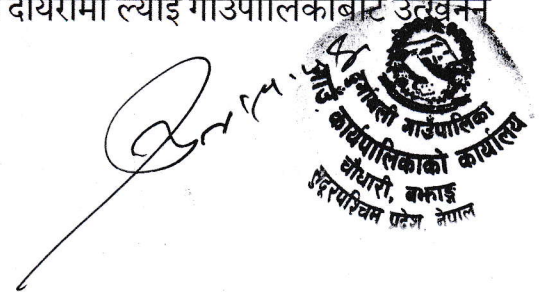 दायरामा ल्याई गाउँपालिकाबाट उत्खनन्
दुर्गाथली गाउँपालिका
गाउँ कार्यपालिकाको कार्यालय
चौधारी, बझाङ्ग
सुदूरपश्चिम प्रदेश नेपाल